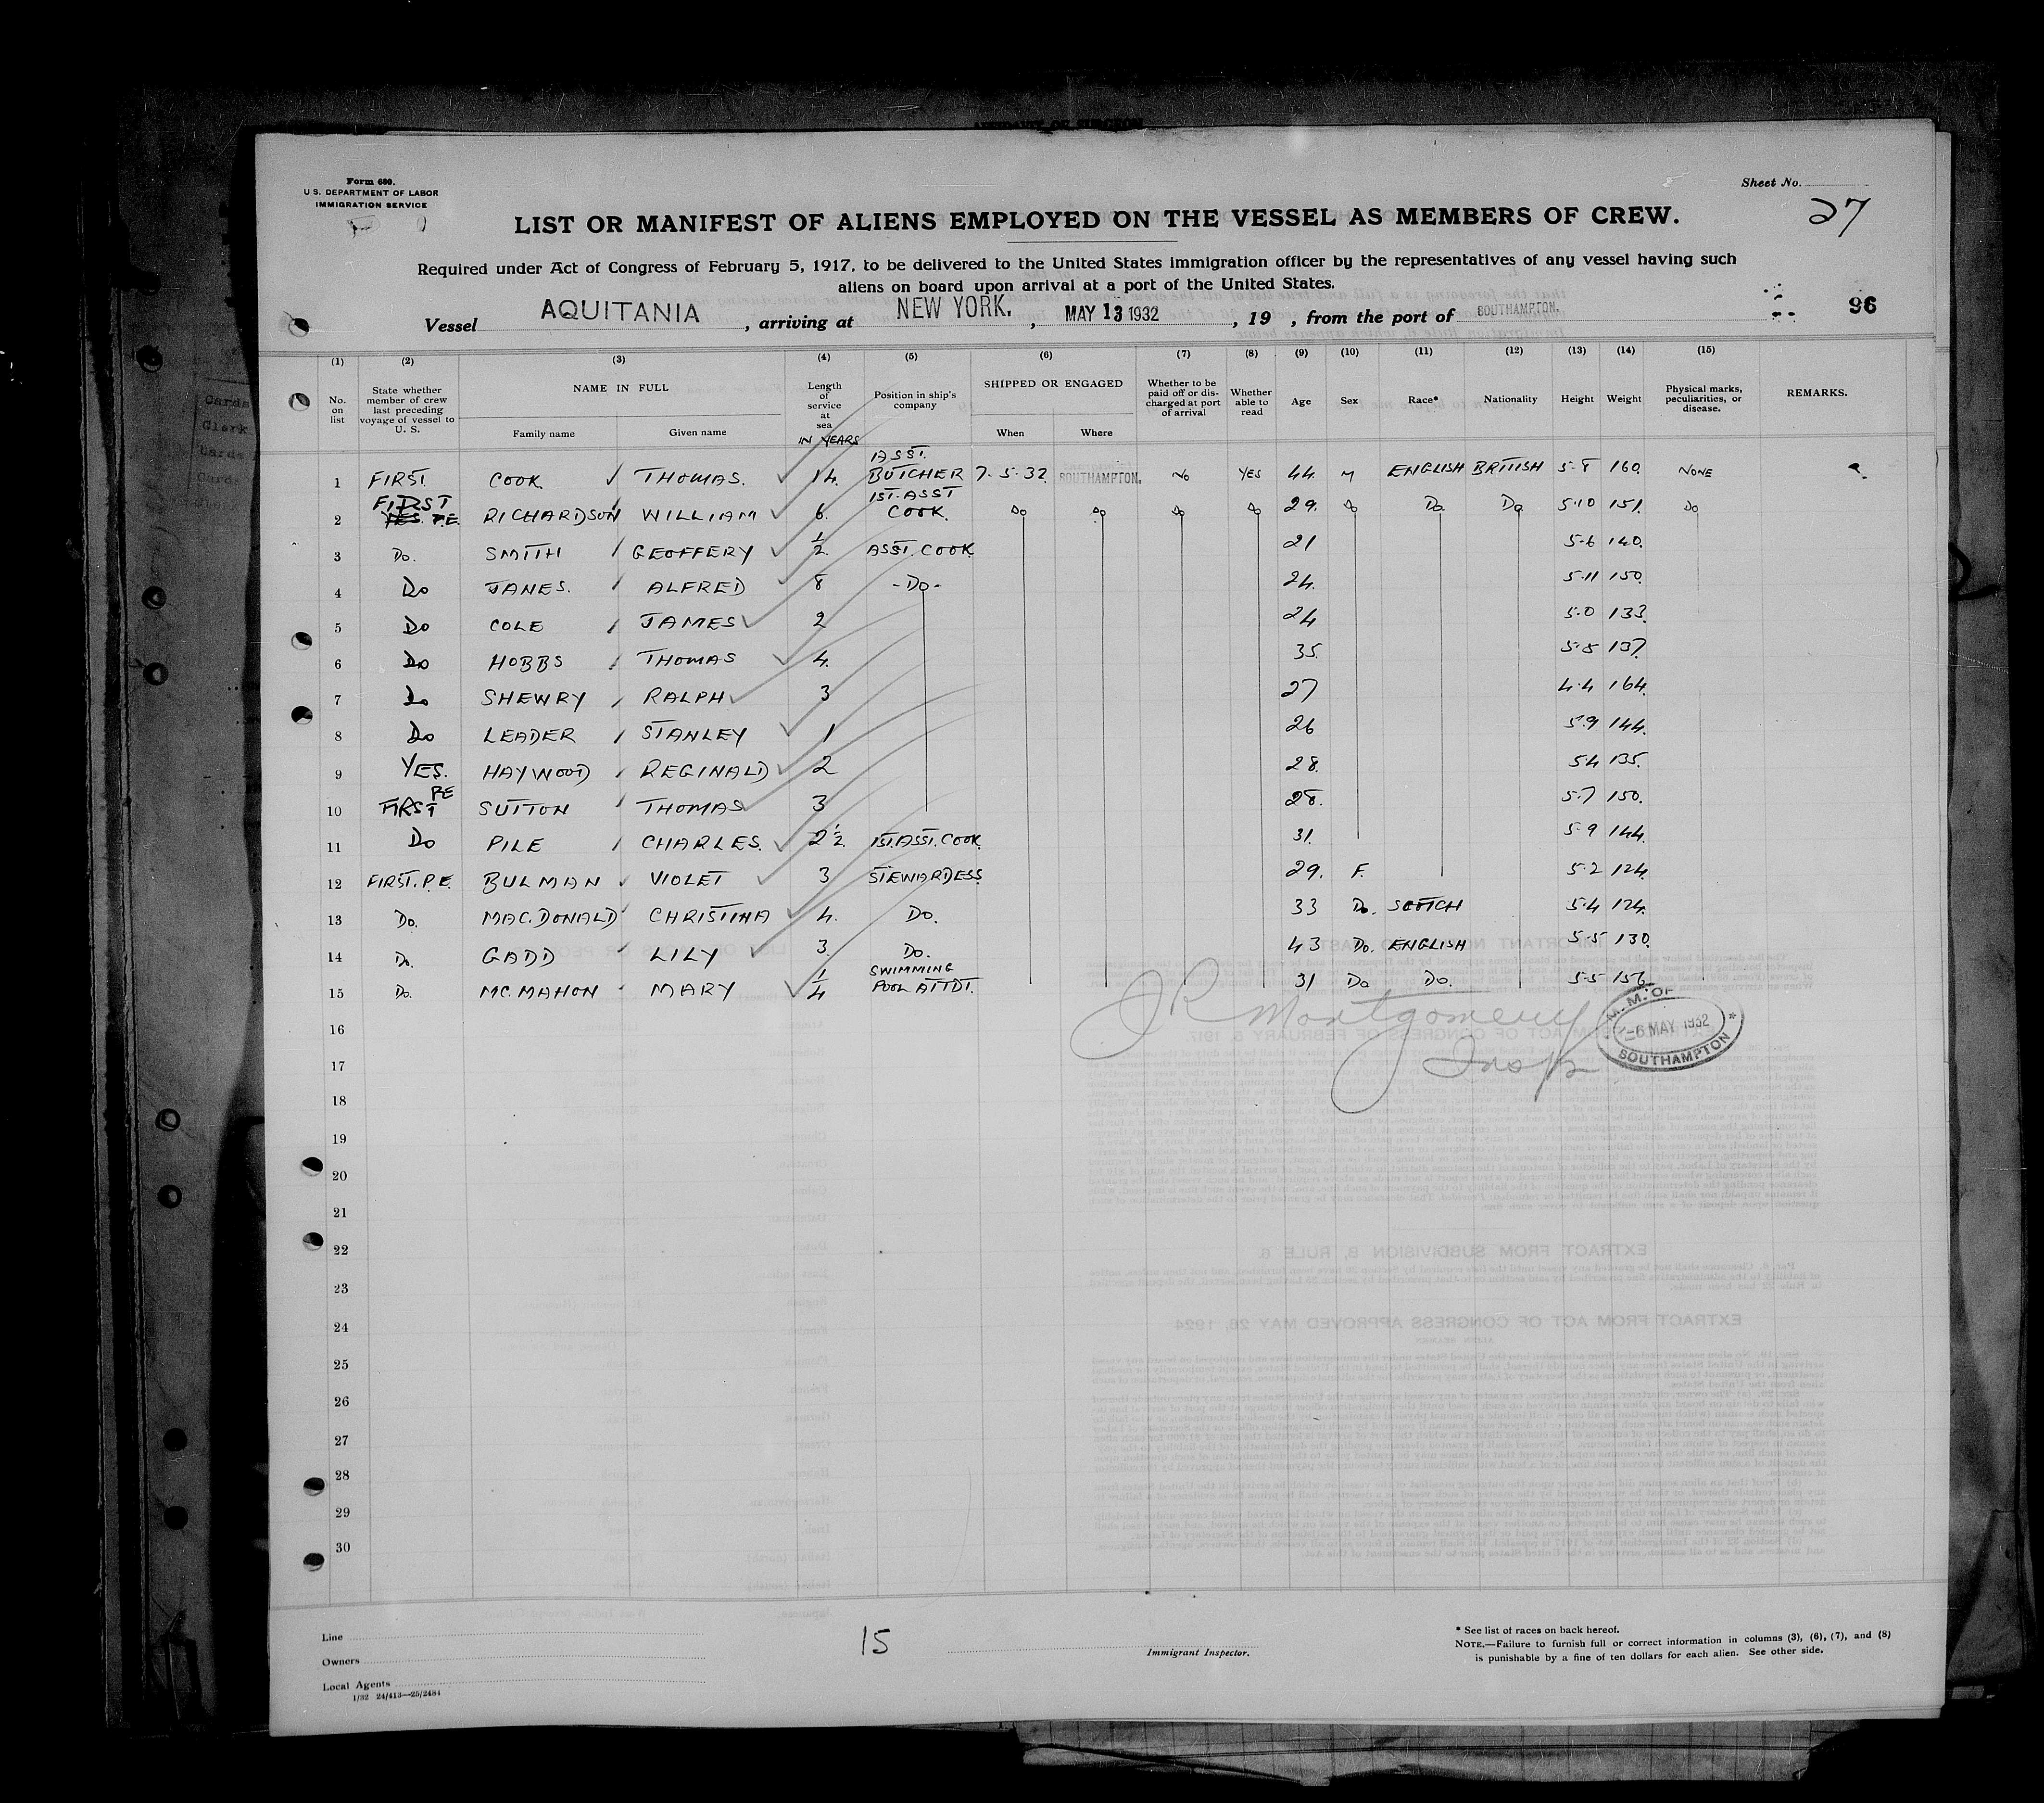 Form 680.
U S. DEPARTMENT OF LABOR
IMMIGRATION SERVICE
Sheet No.
27
LIST OR MANIFEST OF ALIENS EMPLOYED ON THE VESSEL AS MEMBERS OF CREW.
Required under Act of Congress of February 5, 1917, to be delivered to the United States immigration officer by the representatives of any vessel having such
aliens on board upon arrival at a port of the United States.
Vessel AQUITANIA, arriving at NEW YORK., MAY 13 1932, 19 , from the port of SOUTHAMPTON.
96
(1) (2) (3) (4) (5) (6) (7) (8) (9) (10) (11) (12) (13) (14) (15)
No. on list
State whether member of crew last preceding voyage of vessel to U. S.
NAME IN FULL
Family name
Given name
Length of service at sea
IN YEARS
Position in ship's company
SHIPPED OR ENGAGED
When
Where
Whether to be paid off or discharged at port of arrival
Whether able to read
Age
Sex
Race*
Nationality
Height
Weight
Physical marks, peculiarities, or disease.
REMARKS.
1 FIRST. COOK THOMAS. 14. ASST. BUTCHER 7-5-32. SOUTHAMPTON. NO YES 44. M ENGLISH BRITISH 5-8 160. NONE
2 FIRST YES. P.E. RICHARDSON WILLIAM 6. 1ST. ASST COOK. Do Do Do Do 29. Do Do Do 5-10 151. Do
3 Do. SMITH GEOFFERY 1/2 ASST. COOK 21 5-6 140.
4 Do JANES. ALFRED 8 -Do- 24. 5-11 150.
5 Do COLE JAMES 2 24 5-0 133.
6 Do HOBBS THOMAS 4. 35. 5-5 137.
7 Do SHEWRY RALPH 3 27 4-4 164.
8 Do LEADER STANLEY 1 26 5-9 144.
9 YES. HAYWOOD REGINALD 2 28. 5-4 135.
10 FIRST PE SUTTON THOMAS 3 28. 5-7 150.
11 Do PILE CHARLES. 2 1/2. 1ST. ASST. COOK. 31. 5-9 144.
12 FIRST. P.E. BULMAN VIOLET 3 STEWARDESS 29. F. 5-2 124.
13 Do. MAC.DONALD CHRISTINA 4. Do. 33 Do. SCOTCH 5-4 124.
14 Do. GADD LILY 3. Do. 43 Do. ENGLISH 5-5 130.
15 Do. MC.MAHON MARY 1/4 SWIMMING POOL ATTDT. 31 Do Do. 5-5 156.
16
JR Montgomery
Insp
M. M. OF
-6 MAY 1932
SOUTHAMPTON
17
18
19
20
21
22
23
24
25
26
27
28
29
30
Line
Owners
Local Agents
1/32 24/413—25/2484
15
Immigrant Inspector.
* See list of races on back hereof.
NOTE.—Failure to furnish full or correct information in columns (3), (6), (7), and (8)
is punishable by a fine of ten dollars for each alien. See other side.